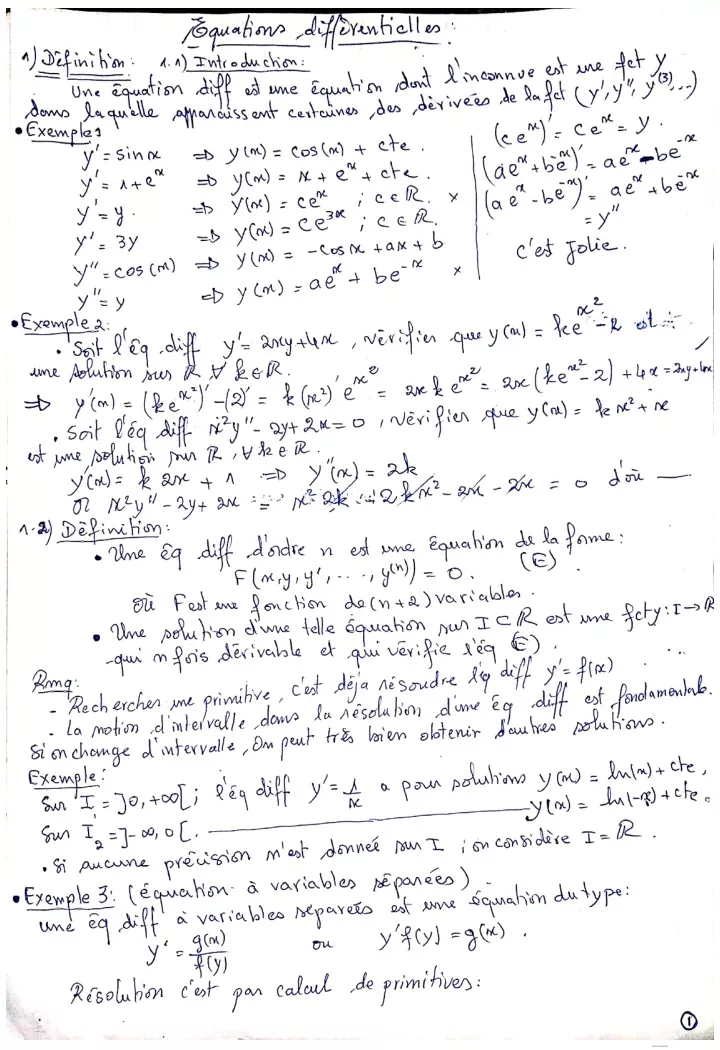 Equations différentielles :
1) Définition : 1.1) Introduction :
Une équation diff est une équation dont l'inconnue est une fct y
dans laquelle apparaissent certaines des dérivées de la fct (y', y'', y⁽³⁾...)
• Exemple 1
y' = sin x ⇒ y(x) = cos(x) + cte.
y' = 1+eˣ ⇒ y(x) = x + eˣ + cte.
y' = y. ⇒ y(x) = ceˣ ; c∈ℝ. x
y' = 3y ⇒ y(x) = Ce³ˣ ; c∈ℝ.
y'' = cos(x) ⇒ y(x) = -cos x + ax + b
y'' = y ⇒ y(x) = aeˣ + be⁻ˣ x
(ceˣ)' = ceˣ = y.
(aeˣ+be⁻ˣ)' = aeˣ - be⁻ˣ
(aeˣ-be⁻ˣ)' = aeˣ + be⁻ˣ
= y''
c'est Jolie.
• Exemple 2 :
. Soit l'éq diff y' = 2xy+4x, vérifier que y(x) = keˣ² - 2 est
une solution sur ℝ ∀ k∈ℝ.
⇒ y'(x) = (keˣ²)' - (2)' = k(x²)' eˣ² = 2x k eˣ² = 2x(keˣ² - 2) + 4x = 2xy+4x
. Soit l'éq diff x²y'' - 2y + 2x = 0, vérifier que y(x) = kx² + x
est une solution sur ℝ, ∀ k∈ℝ.
y'(x) = k 2x + 1 ⇒ y''(x) = 2k
or x²y'' - 2y + 2x = x² 2k - 2kx² - 2x - 2x = 0 d'où —
1.2) Définition :
• Une éq diff d'ordre n est une équation de la forme :
F(x, y, y', ..., y⁽ⁿ⁾) = 0. (E)
Où F est une fonction de (n+2) variables.
• Une solution d'une telle équation sur I ⊂ ℝ est une fct y : I → ℝ
qui n fois dérivable et qui vérifie l'éq (E).
Rmq :
- Rechercher une primitive, c'est déja résoudre l'éq diff y' = f(x)
- La notion d'intervalle dans la résolution d'une éq diff est fondamentale.
Si on change d'intervalle, On peut très bien obtenir d'autres solutions.
Exemple :
Sur I₁ = ]0, +∞[ ; l'éq diff y' = 1/x a pour solutions y(x) = ln(x) + cte,
Sur I₂ = ]-∞, 0[. ——— y(x) = ln(-x) + cte.
. Si aucune précision n'est donneé sur I ; on considère I = ℝ.
• Exemple 3 : (équation à variables séparées)
une éq diff à variables séparées est une équation du type :
y' = g(x)/f(y) ou y'f(y) = g(x).
Résolution c'est par calcul de primitives :
1